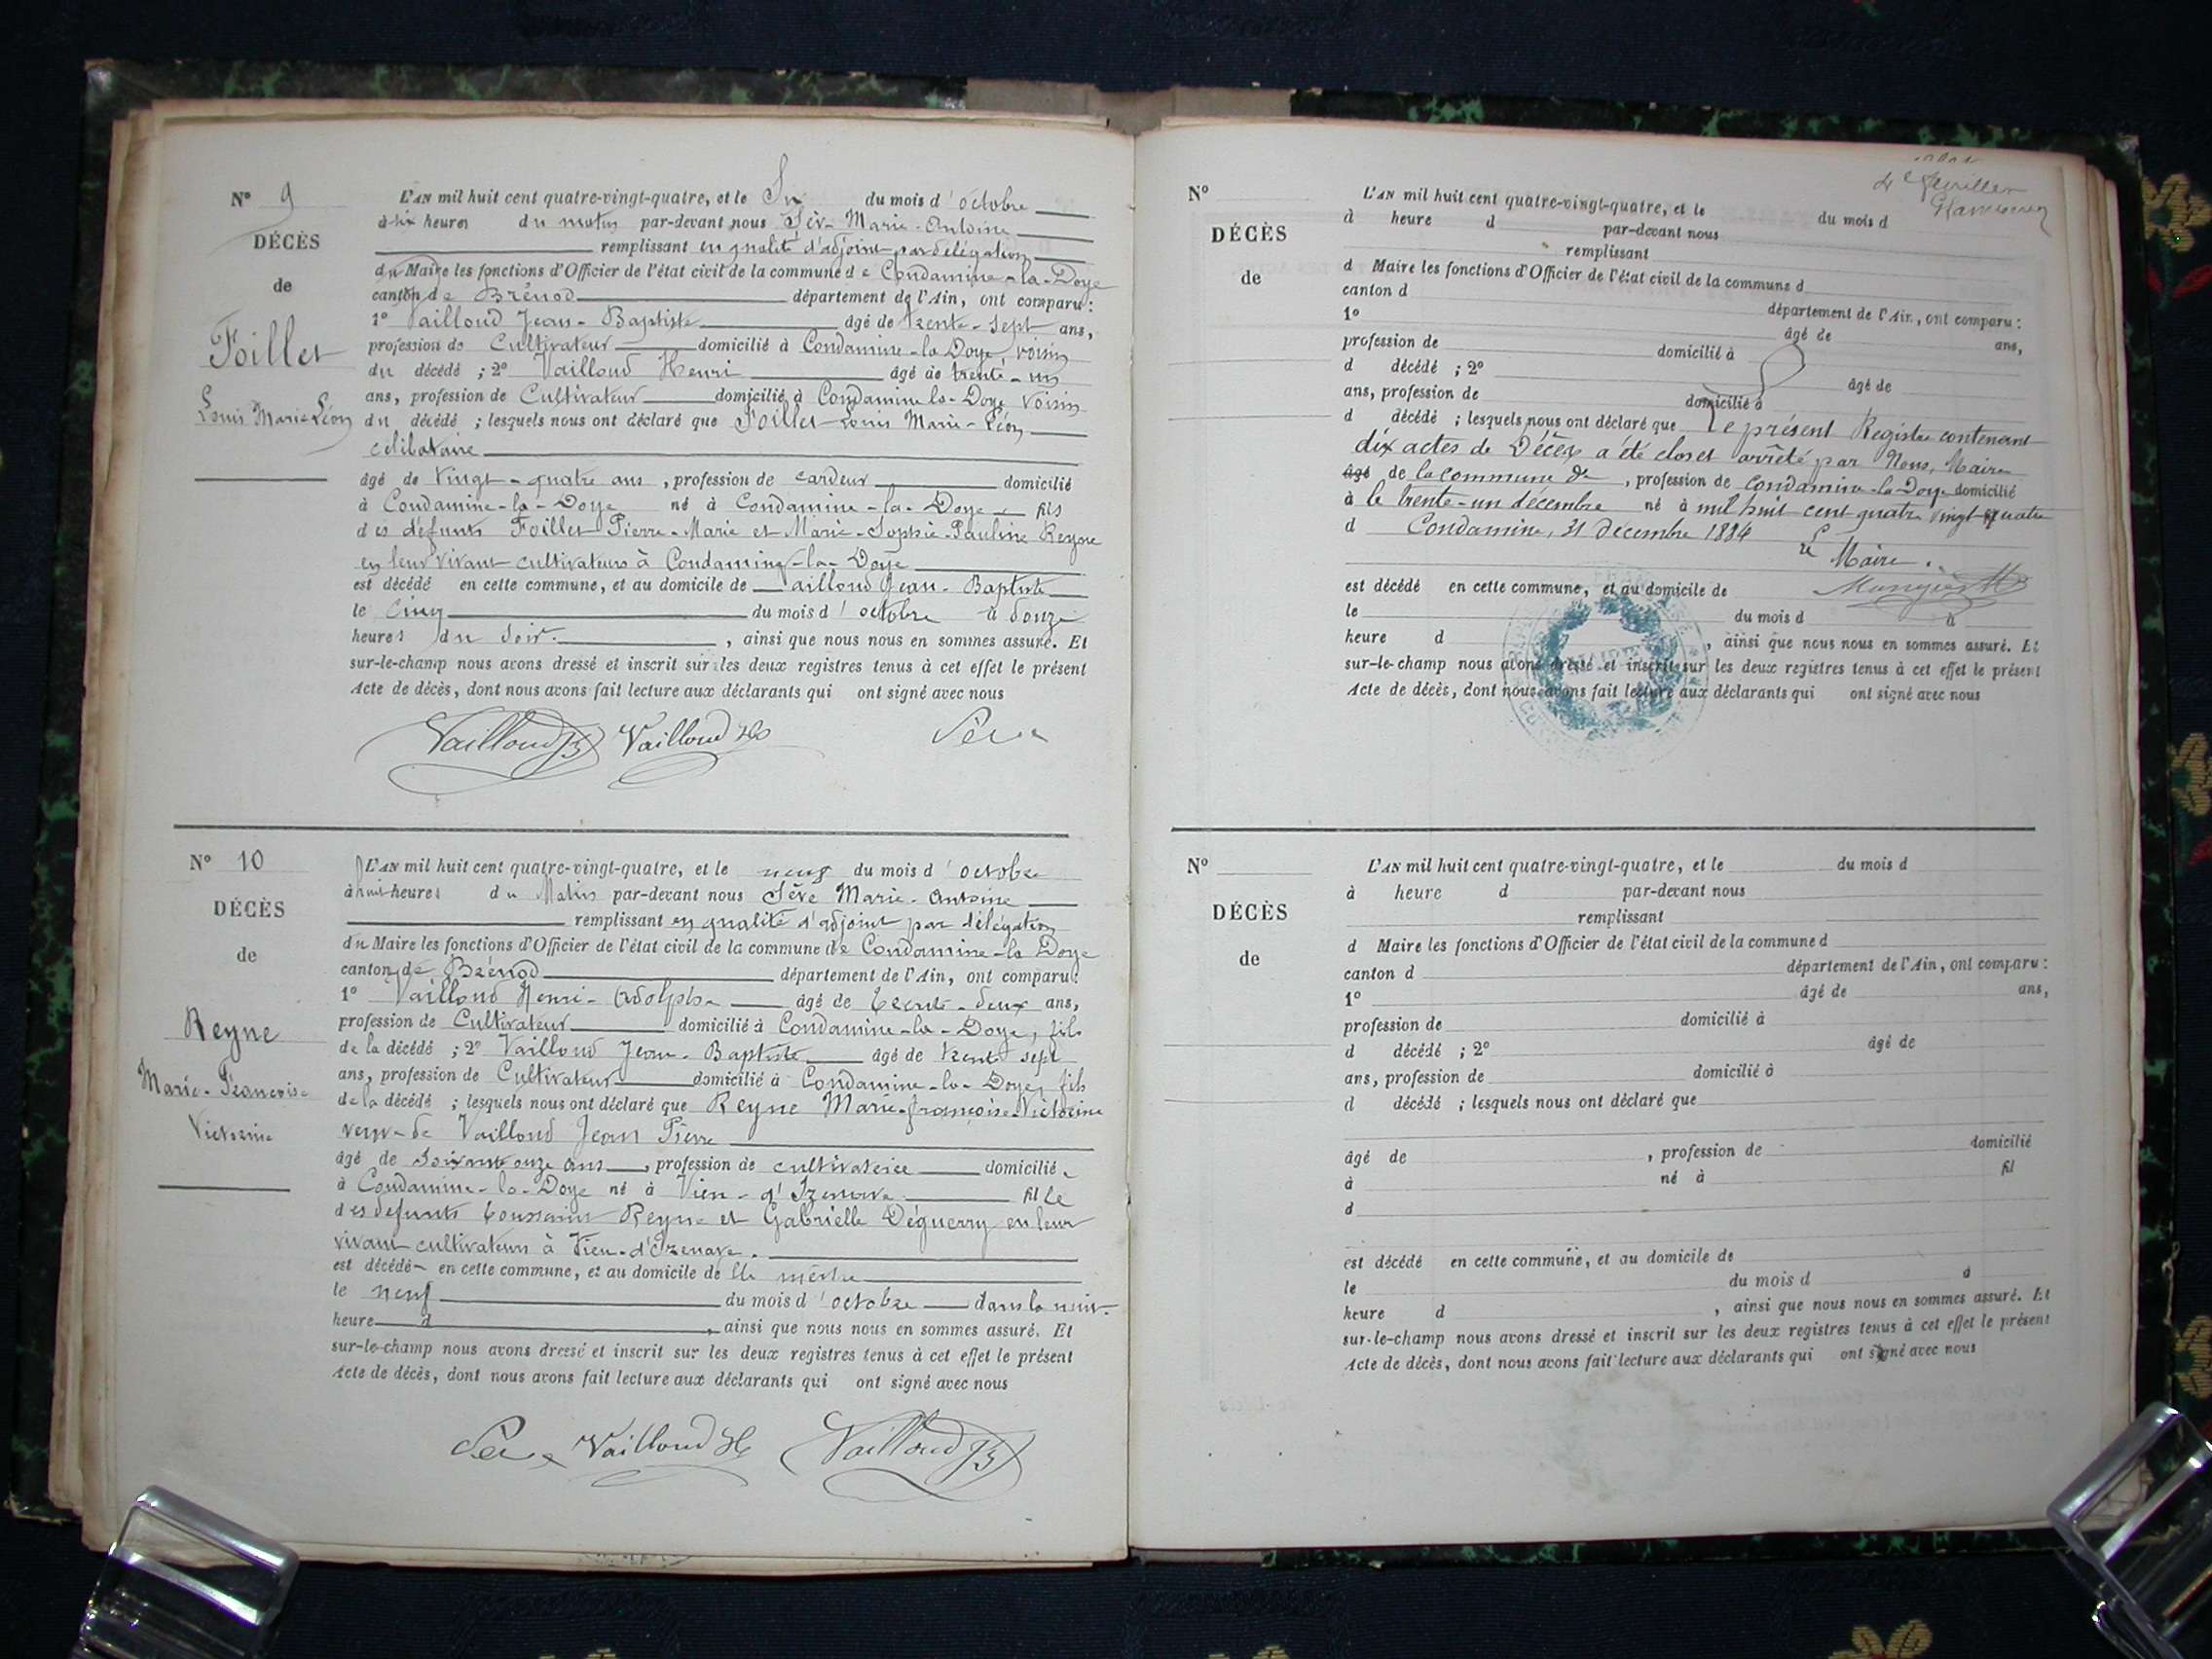 N° 9
DÉCÈS
de
Foillet
Louis Marie Léon
L'AN mil huit cent quatre-vingt-quatre, et le Six du mois d'octobre
à six heures du matin par-devant nous Sève Marie-Antoine
remplissant en qualité d'adjoint par délégation
du Maire les fonctions d'Officier de l'état civil de la commune de Condamine-la-Doye
canton de Brénod département de l'Ain, ont comparu :
1° Vailloud Jean-Baptiste âgé de trente-sept ans,
profession de Cultivateur domicilié à Condamine-la-Doye, voisin
du décédé ; 2° Vailloud Henri âgé de trente-un
ans, profession de Cultivateur domicilié à Condamine la-Doye voisin
du décédé ; lesquels nous ont déclaré que Foillet Louis Marie-Léon
célibataire
âgé de vingt-quatre ans, profession de cardeur domicilié
à Condamine-la-Doye né à Condamine-la-Doye fils
des défunts Foillet Pierre-Marie et Marie-Sophie-Pauline Reyne
en leur vivant cultivateurs à Condamine-la-Doye
est décédé en cette commune, et au domicile de Vailloud Jean-Baptiste
le cinq du mois d'octobre à douze
heures du soir, ainsi que nous nous en sommes assuré. Et
sur-le-champ nous avons dressé et inscrit sur les deux registres tenus à cet effet le présent
Acte de décès, dont nous avons fait lecture aux déclarants qui ont signé avec nous
Vailloud JB Vailloud H Sève
N° 10
DÉCÈS
de
Reyne
Marie-Françoise
Victorine
L'AN mil huit cent quatre-vingt-quatre, et le neuf du mois d'octobre
à huit heures du Matin par-devant nous Sève Marie-Antoine
remplissant en qualité d'adjoint par délégation
du Maire les fonctions d'Officier de l'état civil de la commune de Condamine-la Doye
canton de Brénod département de l'Ain, ont comparu :
1° Vailloud Henri-Adolphe âgé de trente-deux ans,
profession de Cultivateur domicilié à Condamine-la-Doye, fils
de la décédé ; 2° Vailloud Jean-Baptiste âgé de trente sept
ans, profession de Cultivateur domicilié à Condamine-la-Doye, fils
de la décédé ; lesquels nous ont déclaré que Reyne Marie-françoise-Victorine
veuve de Vailloud Jean Pierre
âgé de soixante onze ans, profession de cultivatrice domiciliée
à Condamine-la-Doye né à Vieu-d'Izenave fille
des défunts Toussaint Reyne et Gabrielle Déguerry en leur
vivant cultivateurs à Vieu-d'Izenave.
est décédée en cette commune, et au domicile de elle même
le neuf du mois d'octobre dans la nuit
heure d, ainsi que nous nous en sommes assuré. Et
sur-le-champ nous avons dressé et inscrit sur les deux registres tenus à cet effet le présent
Acte de décès, dont nous avons fait lecture aux déclarants qui ont signé avec nous
Sève Vailloud H Vailloud JB
4e feuillet
N°
DÉCÈS
de
L'AN mil huit cent quatre-vingt-quatre, et le du mois d
à heure d par-devant nous
remplissant
d Maire les fonctions d'Officier de l'état civil de la commune d
canton d département de l'Ain, ont comparu :
1° âgé de ans,
profession de domicilié à
d décédé ; 2° âgé de
ans, profession de domicilié à
d décédé ; lesquels nous ont déclaré que Le présent Registre contenant
dix actes de Décès a été clos et arrêté par Nous, Maire
âgé de la commune de, profession de Condamine-la-Doye domicilié
à le trente-un décembre né à mil huit cent quatre vingt quatre
d Condamine, 31 décembre 1884
Le Maire.
est décédé en cette commune, et au domicile de
le du mois d à
heure d, ainsi que nous nous en sommes assuré. Et
sur-le-champ nous avons dressé et inscrit sur les deux registres tenus à cet effet le présent
MAIRIE
Acte de décès, dont nous avons fait lecture aux déclarants qui ont signé avec nous
N°
DÉCÈS
de
L'AN mil huit cent quatre-vingt-quatre, et le du mois d
à heure d par-devant nous
remplissant
d Maire les fonctions d'Officier de l'état civil de la commune d
canton d département de l'Ain, ont comparu :
1° âgé de ans,
profession de domicilié à
d décédé ; 2° âgé de
ans, profession de domicilié à
d décédé ; lesquels nous ont déclaré que
âgé de, profession de domicilié
à né à fil
d
est décédé en cette commune, et au domicile de
le du mois d à
heure d, ainsi que nous nous en sommes assuré. Et
sur-le-champ nous avons dressé et inscrit sur les deux registres tenus à cet effet le présent
Acte de décès, dont nous avons fait lecture aux déclarants qui ont signé avec nous